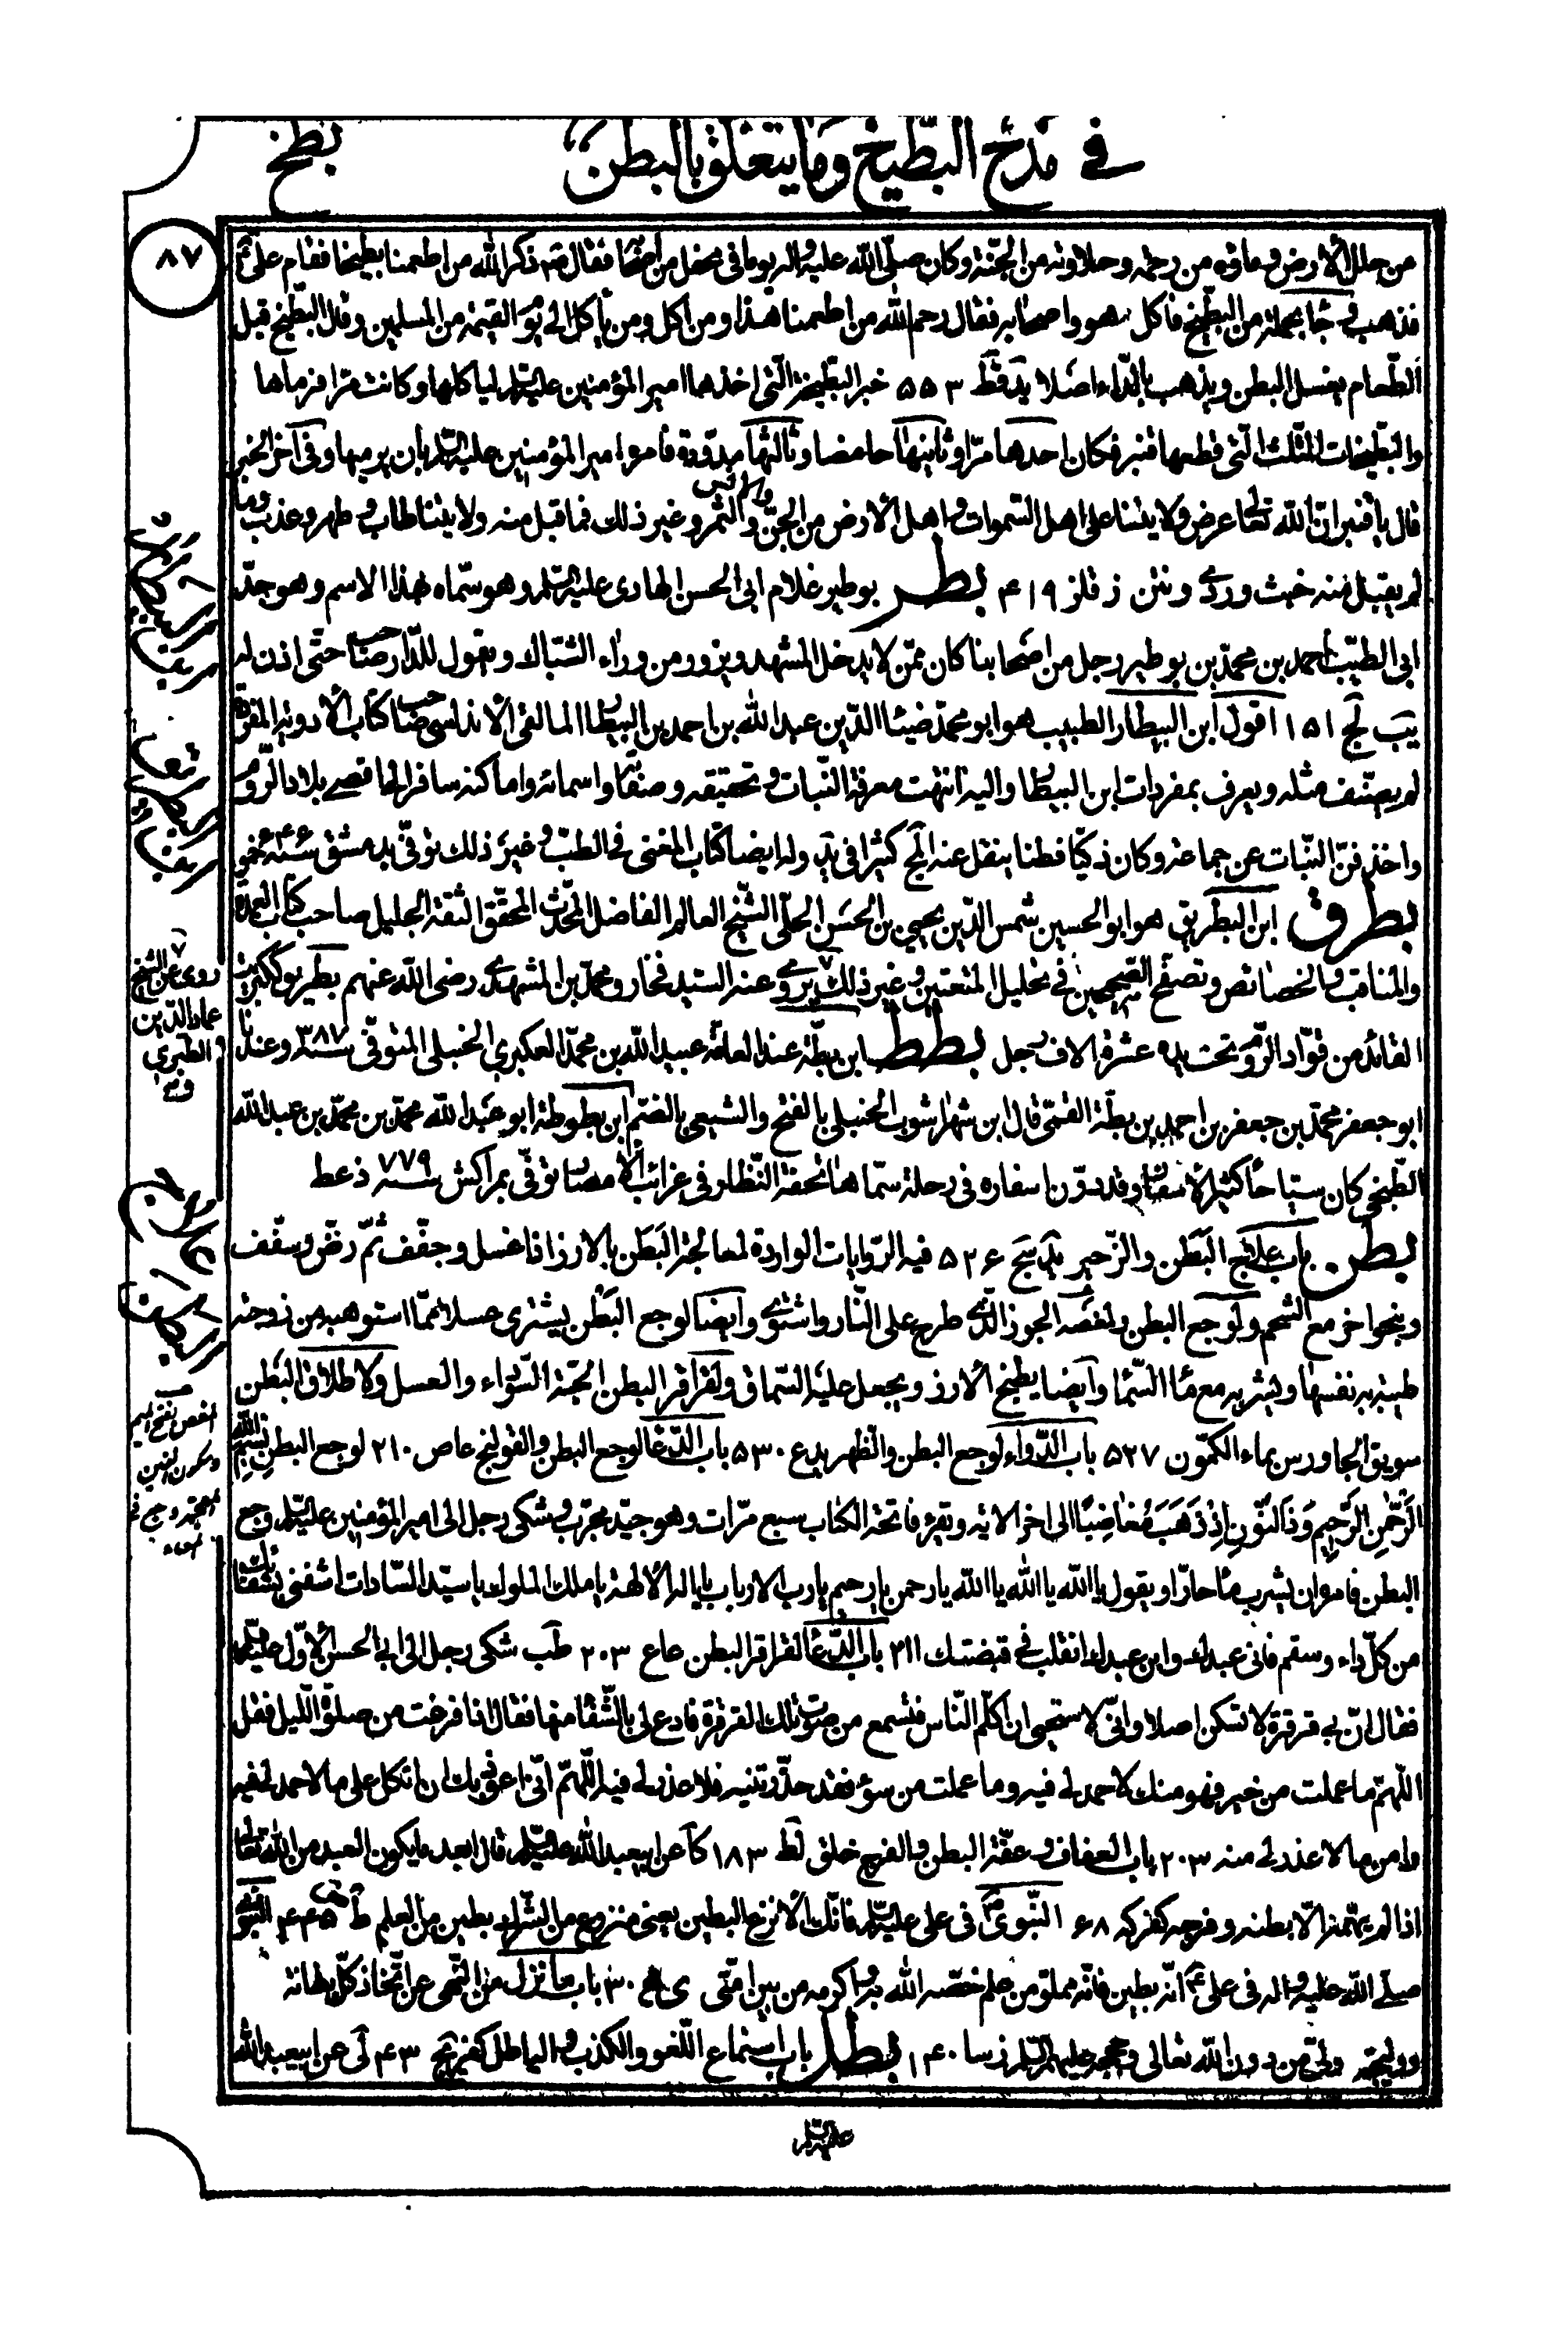 في مدح البطّيخ وما يتعلّق بالبطن
بطخ
٨٧
من حلل الأرض وماؤه من رحمة وحلاوته من الجنّة وكان صلّى الله عليه وآله يوما في محفل من أصحابه فقال ص ذكر الله من اطعمنا بطيخا فقام عليّ ع
فذهب وجاء بجملة من البطّيخ فأكل هو واصحابه فقال رحم الله من اطعمنا هذا ومن اكل ومن يأكل الى يوم القيمة من المسلمين وقال البطّيخ قبل
الطّعام يغسل البطن ويذهب بالداء اصلا يد قفط ٥٥٣ خبر البطّيخة الّتي اخذها امير المؤمنين عليه السّلم ليأكلها وكانت مرّة فرماها
والبطّيخات الثلث الّتي قطعها قنبر فكان احدها مرّا وثانيها حامضا وثالثها مدوّدة فامره امير المؤمنين عليه السّلم بان يرميها وفي آخر الخبر
قال يا قنبر انّ الله تعالى عرض ولايتنا على اهل السّموات واهل الأرض من الجنّ والانس والثمر وغير ذلك فما قبل منه ولايتنا طاب وطهر وعذب وما
لم يقبل منه خبث وردى ونتن ز قلز ٤١٩ بطر بوطير غلام ابي الحسن الهادي عليه السّلم وهو سمّاه بهذا الاسم وهو جدّ
ابي الطيّب احمد بن محمّد بن بوطير رجل من اصحابنا كان ممّن لا يدخل المشهد ويزور من وراء الشبّاك ويقول للدّار صاحب حتّى اذن له
يب لج ١٥١ اقول ابن البيطار الطبيب هو ابو محمّد ضياء الدّين عبد الله بن احمد بن البيطار المالقي الأندلسي صاحب كتاب الأدوية المفردة
لم يصنّف مثله ويعرف بمفردات ابن البيطار واليه انتهت معرفة النّبات وتحقيقه وصفاته واسمائه واماكنه سافر الى اقصى بلاد الرّوم
واخذ فنّ النّبات عن جماعة وكان ذكيّا فطنا ينقل عنه المج كثيرا في يد وله ايضا كتاب المغني في الطبّ وغير ذلك توفّي بدمشق سنة ٦٤٦
بطرق ابن البطريق هو ابو الحسين شمس الدّين يحيى بن الحسن الحلّي الشّيخ العالم الفاضل المحدّث المحقّق الثقة الجليل صاحب كتاب العمدة
والمناقب والخصائص وتصفّح الصّحيحين في تحليل المتعتين وغير ذلك يروي عنه السيّد فخار ومحمّد بن المشهدي رضي الله عنهم بطريق ككبريت
القائد من قوّاد الرّوم تحت يده عشرة الاف رجل بطط ابن بطّة عند العامّة عبيد الله بن محمّد العكبري الحنبلي المتوفّى سنة ٣٨٧ وعندنا
ابو جعفر محمّد بن جعفر بن احمد بن بطّة القمّي قال ابن شهراشوب الحنبلي بالفتح والشيعي بالضمّ ابن بطوطة ابو عبد الله محمّد بن محمّد بن عبد الله
الطّنجي كان سيّاحا كثير الأسفار وقد دوّن اسفاره في رحلة سمّاها تحفة النّظار في غرائب الأمصار توفّي بمراكش سنة ٧٧٩ ذعط
بطن باب علاج البطن والزّحير يد سج ٥٢٦ فيه الرّوايات الواردة لمعالجة البَطَن بالارز اذا غسل وجفّف ثمّ رضّ وسفّف
وبنحو اخر مع الشّحم ولوجع البطن ولمغصه الجوز الّذي طرح على النّار واشتوى وايضا لوجع البطن يشترى عسلا ممّا استوهبه من زوجته
طيبة به نفسها ويشربه مع ماء السّماء وايضا يطبخ الأرز ويجعل عليه السّماق ولقراقر البطن الحبّة السّوداء والعسل ولاطلاق البَطَن
سويق الجاورس بماء الكمّون ٥٢٧ باب الدّواء لوجع البطن والظهر يدع ٥٣٠ باب الدّعاء لوجع البطن والقولنج عاص ٢١٠ لوجع البطن بسم الله
الرّحمن الرّحيم وذا النّون اذ ذهب مغاضبا الى اخر الآية ويقرء فاتحة الكتاب سبع مرّات وهو جيّد مجرّب وشكى رجل الى امير المؤمنين عليه السّلم وجع
البطن فامره ان يشرب ماء حارّا ويقول يا الله يا الله يا الله يا رحمن يا رحيم يا رب الارباب يا اله الألهة يا ملك الملوك يا سيّد السّادات اشفني بشفائك
من كلّ داء وسقم فانّي عبدك وابن عبدك انقلب في قبضتك ٢١١ باب الدّعاء لقراقر البطن عاع ٢٠٣ طب شكى رجل الى ابي الحسن الأوّل عليه السّلم
فقال انّ بي قرقرة لا تسكن اصلا وانّي لاستحيي ان اكلّم النّاس فتسمع من صوت تلك القرقرة فادع لي بالشّفاء منها فقال اذا فرغت من صلوة اللّيل فقل
اللّهمّ ما عملت من خير فهو منك لا حمد لي فيه وما عملت من سوء فقد حذّرتنيه فلا عذر لي فيه اللّهمّ انّي اعوذ بك ان اتكل على ما لا حمد لي فيه
وامن ما لا عذر لي منه ٢٠٣ باب العفاف وعفّة البطن والفرج خلق لط ١٨٣ كا عن ابي عبد الله عليه السّلم قال ابعد ما يكون العبد من الله تعالى
اذا لم يهمّه الّا بطنه وفرجه كفر كه ٦٨ النّبويّ ص في علي عليه السّلم فانّك الأنزع البطين يعني منزوع من الشّرك بطين من العلم ط ٤٤٥ النّبويّ
صلّى الله عليه واله في علي ع انّه بطين فانّه مملوّ من علم خصّه الله به واكرمه من بين امّتي ٣٠ باب ما نزل من النّهي عن اتّخاذ كلّ بطانة
ووليجة وليّ من دون الله تعالى وحججه عليهم السّلم ز سا ١٤٠ بطل باب استماع اللّغو والكذب والباطل كفر قج ٤٣ لى عن ابي عبد الله
عليه السّلم
روى عن الشّيخ
عماد الدّين
الطبري
المغص بفتح الميم
وسكون الغين
المعجمة وجع في